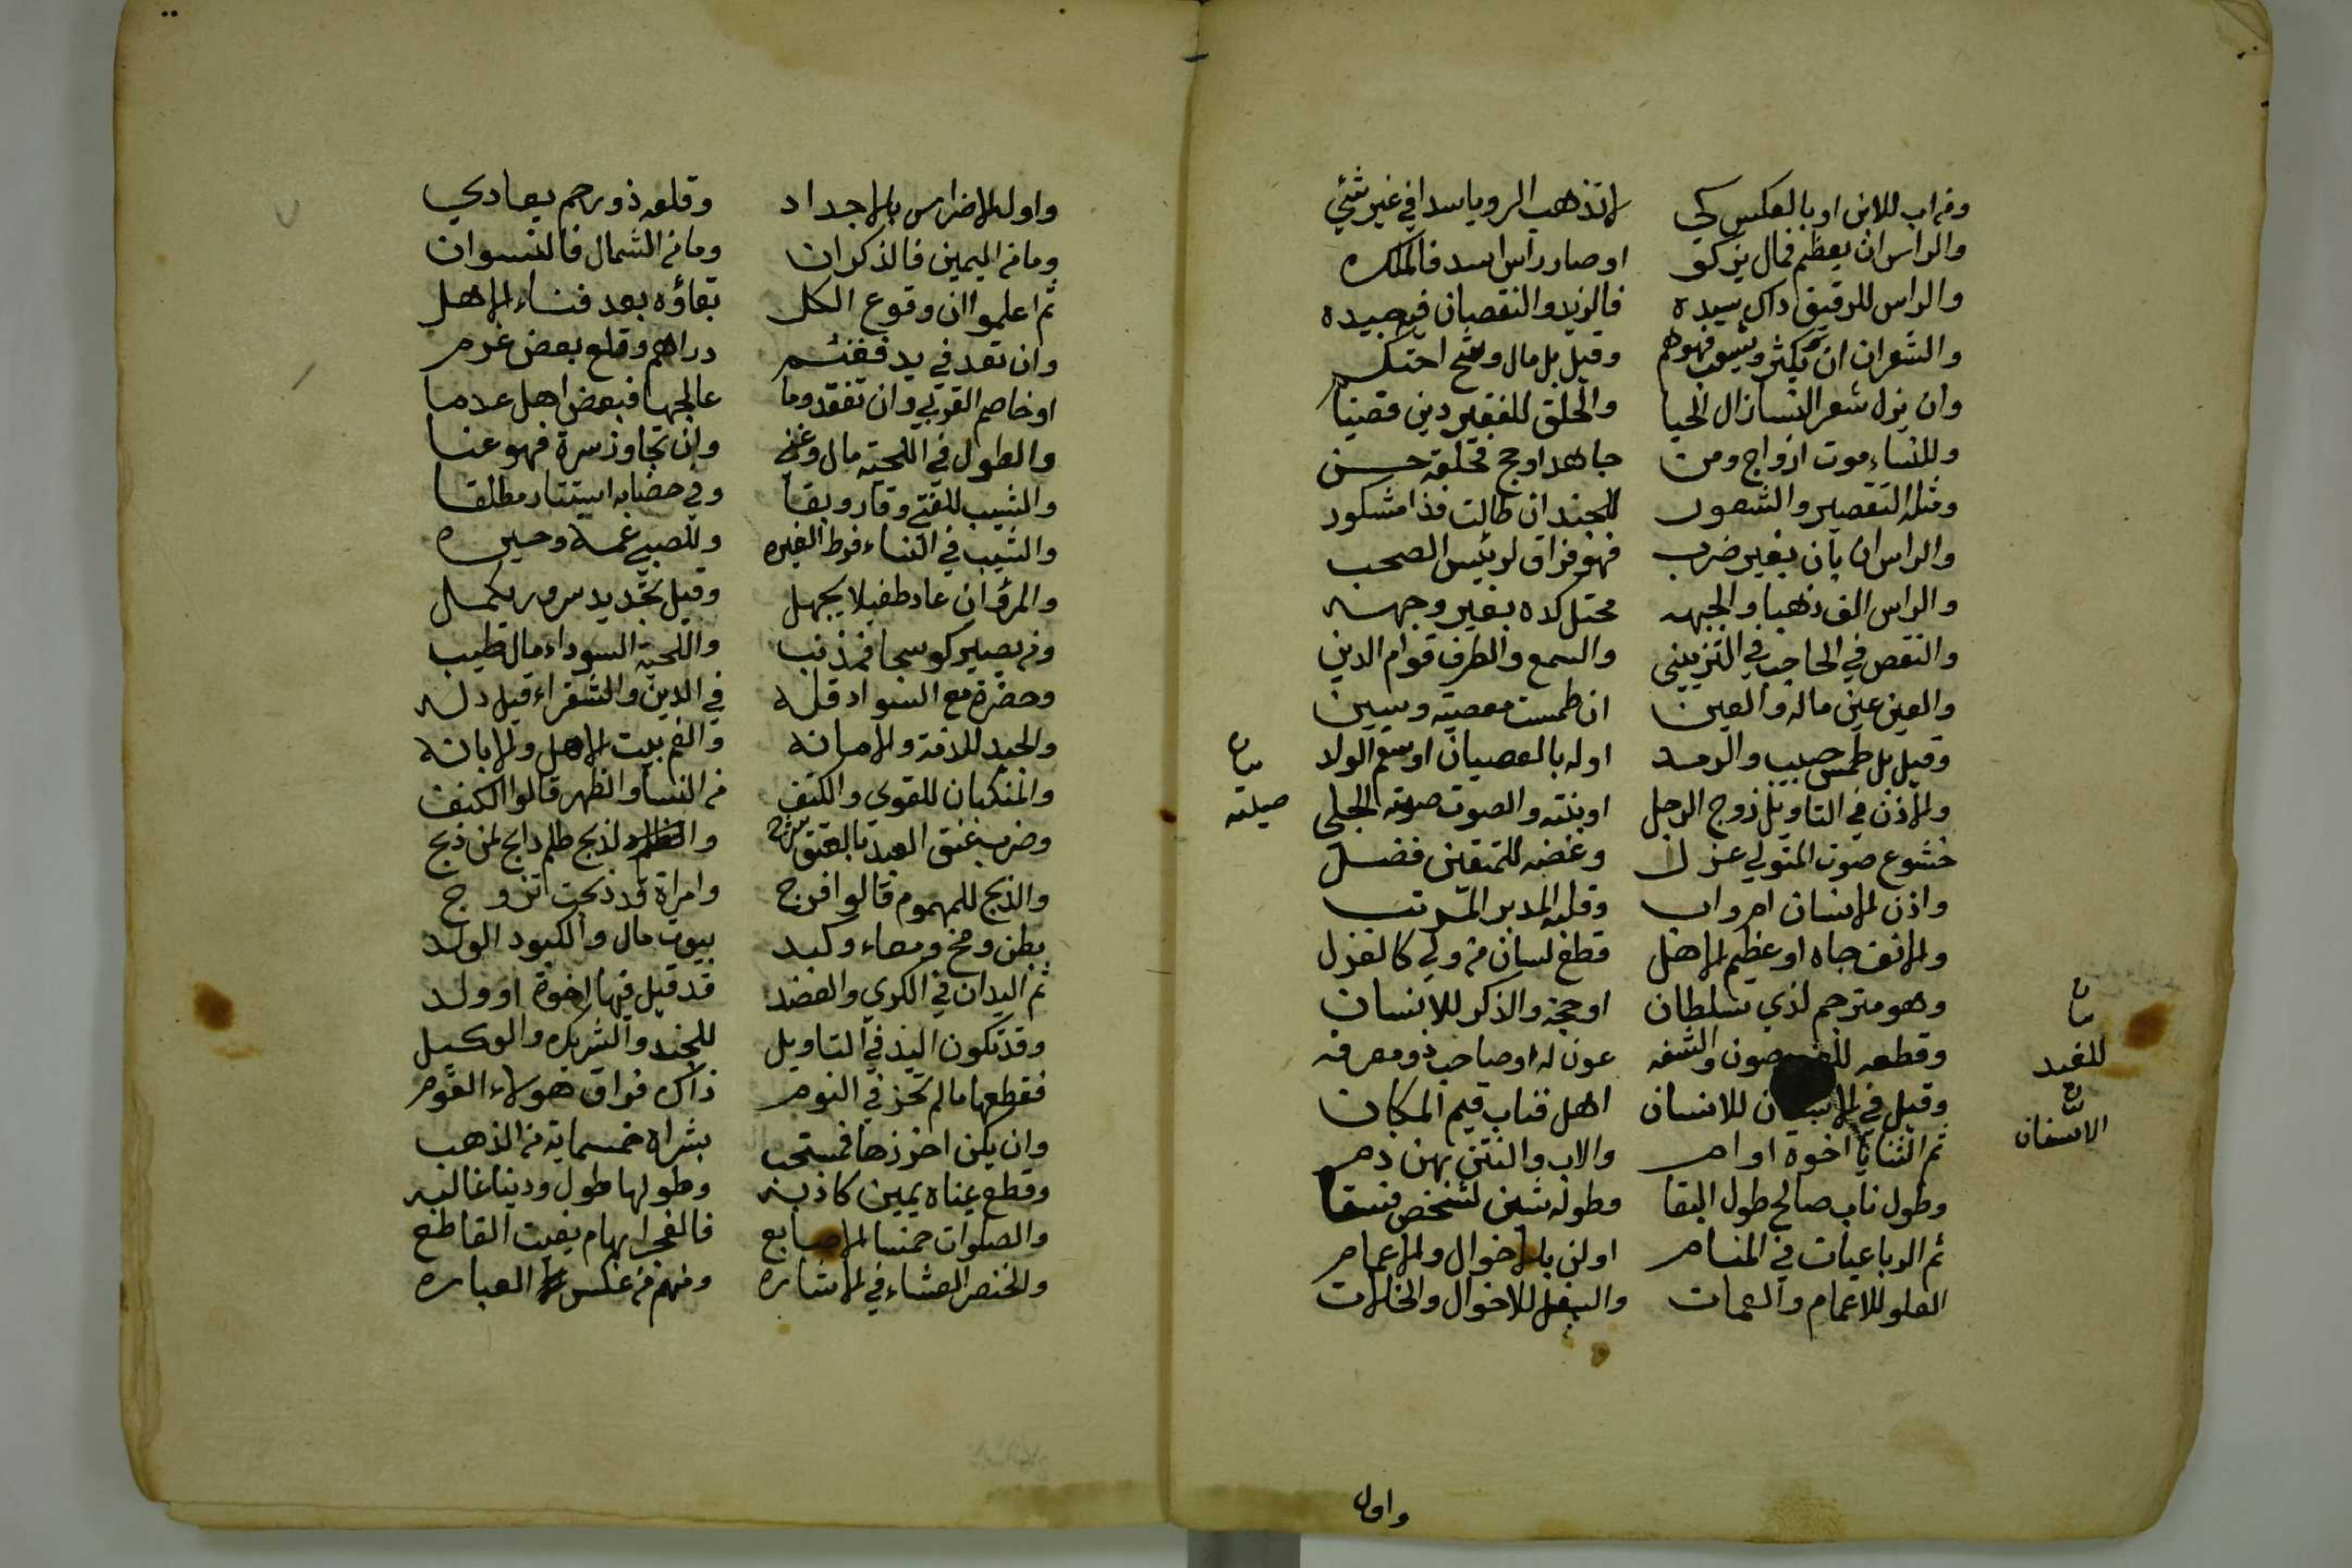 ومن اب للابن او بالعكس كي لا تذهب الرويا سدا في غير شئي
والراس ان يعظم فمال يزكو او صار راس اسد فالملك
والراس للرقيق ذاك سيده فالزيد والنقصان فيه جيده
والشعران ان يكثر فهو هم وقيل بل مال
وان يزل شعر النسا زال الحيا والحلق للفقير دين قضيا
وللنساء موت ازواج ومن جاهد او حج فحلقه حسن
ومثله التقصير والشعور للجند ان طالت فذا مشكور
والراس ان بان بغير ضرب فهو فراق لرئيس الصحب
والراس الف ذهبا والجبهه بغير وجهه
والنقص في الحاجب في التزيين والسمع والطرف قوام الدين
والعين عين ماله والعين ان طمست معصيته وسبين
وقيل بل طمس حبيب والرمد اوله بالعصيان او سقم الولد
والاذن في التاويل زوج الرجل او بنته والصوت صيته الجلي
بيان
صيته
خشوع صوت المتولي عزل وغضه للمتقين فضل
واذن الانسان ام واب وقلبه المدبر المرتب
والانف جاه او عظيم الاهل قطع لسان من ولي كالعزل
وهو مترجم لذي سلطان او حجة والذكر للانسان
وقطعه صون والشفه عون له او صاحب ذو معرفه
بيان
للفيد
الاسنان
وقيل في للانسان اهل قباب قيم المكان
ثم الثنايا اخوة او ام والاب والنتن بهن ذم
وطول ناب صالح طول البقا وطوله شين لشخص فسقا
ثم الرباعيات في المنام اولن بالاخوال والاعمام
العلو للاعمام والعمات والسفل للاخوال والخالات
واول
واول الاضراس بالاجداد وقلعه ذو رحم يعادي
وما من اليمين فالذكران وما من الشمال فالنسوان
ثم اعلموا ان وقوع الكل بقاؤه بعد فناء الاهل
وان تعد في يد فغنم دراهم وقلع بعض غرم
او خاصم القربي وان تفقد وما عالجها فبعض اهل عدما
والطول في اللحية مال وغني وان تجاوز سرة فهو عنا
والشيب للفتي وقار وبقا وفي خضابه استتار مطلقا
والشيب في النساء فرط الغيره وللصبي غمة وحيره
والمرؤ ان عاد طفيلا يجهل وقيل تجديد سرور يكمل
ومن يصير كوسجا فمذنب واللحية السوداء مال طيب
وخضرة مع السواد قله في الدين والشقراء قيل ذله
والجيد للذمة والامانه والفم بيت الاهل والابانه
والمنكبان للقوي والكتف من النسا والظهر قالوا الكنف
وضرب عنق العبد بالعتق لذبح ظلم ذابح لمن ذبح
والذبح للمهموم قالوا افرج وامراة قد ذبحت تزوج
بطن ومخ ومعاء وكبد بيوت مال والكبود الولد
ثم اليدان في الكري والعضد قد قيل فيها اخوة او ولد
وقد تكون اليد في التاويل للجند والشريك والوكيل
فقطعها ما لم تحز في النوم ذاك فراق هولاء القوم
وان يكن اخذها فمستحب بشراه خمسماية من الذهب
وقطع يمناه يمين كاذبه وطولها طول ودينا غالبه
والصلوات خمسا الاصابع فالفجر ابهام بغيت القاطع
والخنصر العشاء في الاشاره ومنهم من عكس العباره